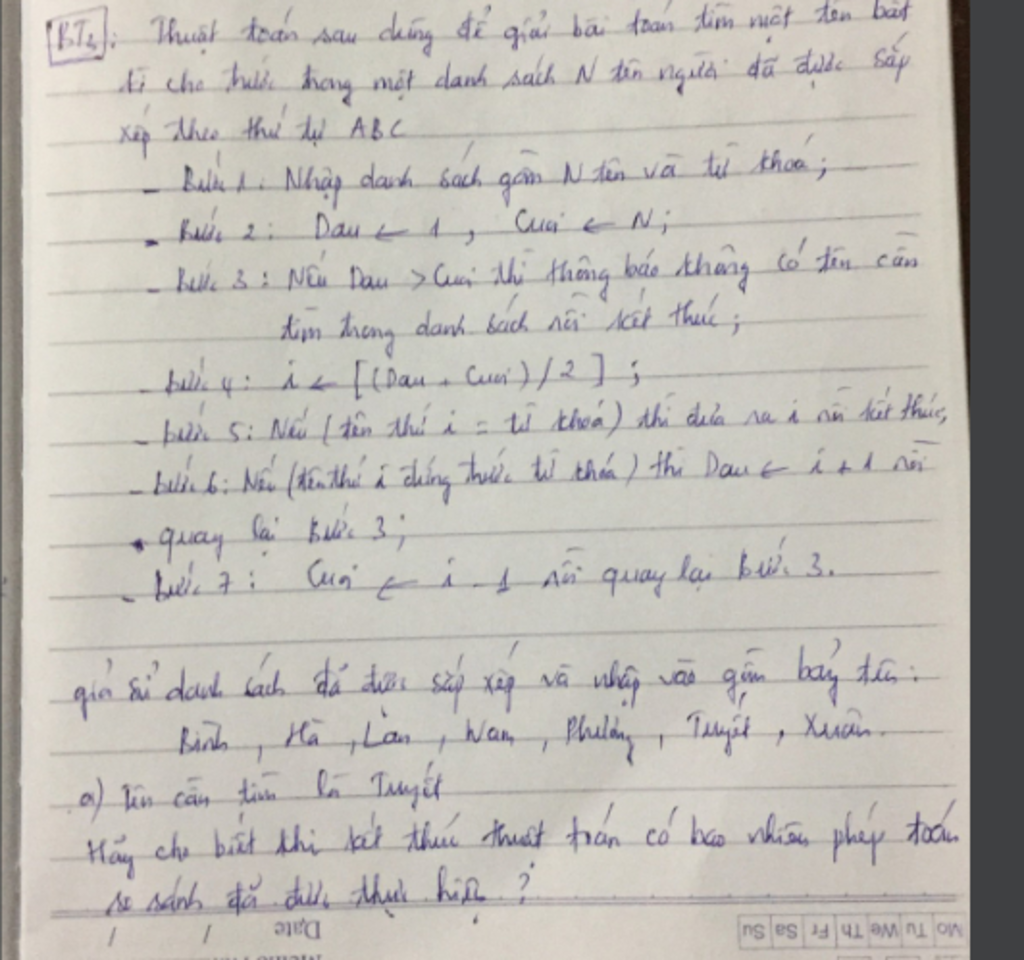 BT3: Thuật toán sau dùng để giải bài toán tìm một tên bất
kì cho trước trong một danh sách N tên người đã được sắp
xếp theo thứ tự ABC
- Bước 1: Nhập danh sách gồm N tên và từ khoá;
- Bước 2: Dau ← 1, Cuoi ← N;
- Bước 3: Nếu Dau > Cuoi thì thông báo không có tên cần
tìm trong danh sách rồi kết thúc;
- Bước 4: i ← [(Dau + Cuoi)/2];
- Bước 5: Nếu (tên thứ i = từ khoá) thì đưa ra i rồi kết thúc,
- Bước 6: Nếu (tên thứ i đứng trước từ khóa) thì Dau ← i + 1 rồi
quay lại Bước 3;
- Bước 7: Cuoi ← i - 1 rồi quay lại Bước 3.
giả sử danh sách đã được sắp xếp và nhập vào gồm bảy tên:
Bình, Hà, Lan, Nam, Phương, Tuyết, Xuân.
a) Tên cần tìm là Tuyết
Hãy cho biết khi kết thúc thuật toán có bao nhiêu phép toán
so sánh đã được thực hiện?
/ / Date
Mo Tu We Th Fr Sa Su